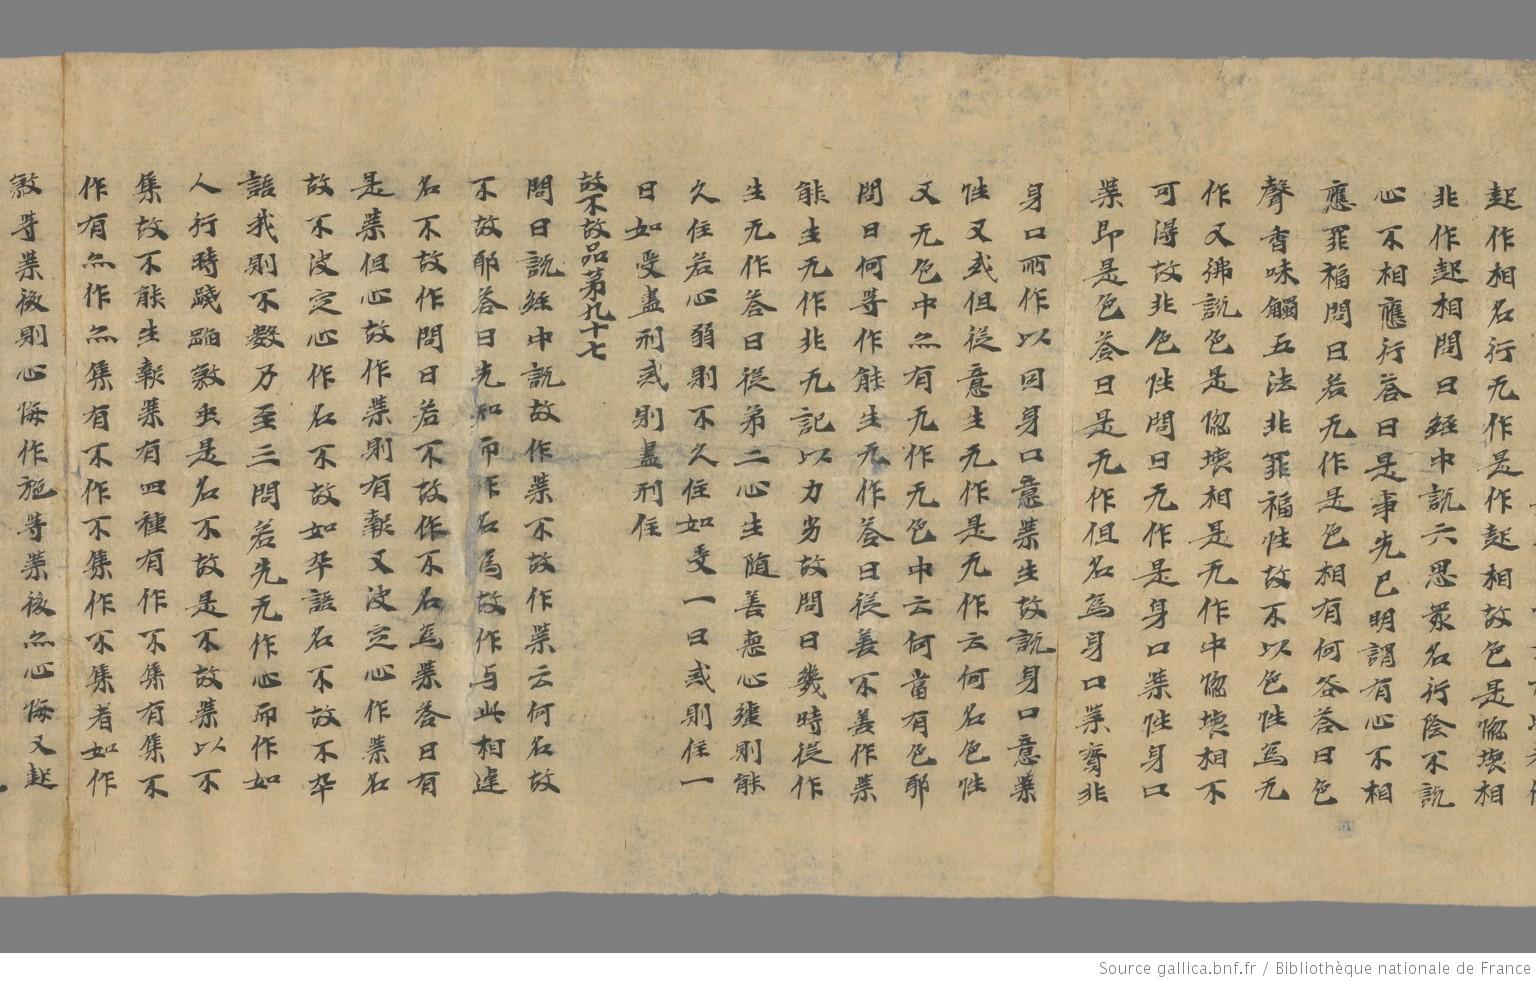 起作相名行无作是作起相故色是惱壞相
非作起相問曰經中說六思眾名行陰不說
心不相應行答曰是事先已明謂有心不相
應罪福問曰若无作是色相有何咎答曰色
聲香味觸五法非罪福性故不以色性為无
作又佛說色是惱壞相是无作中惱壞相不
可得故非色性問曰无作是身口業性身口
業即是色答曰是无作但名為身口業實非
身口所作以因身口意業生故說身口意業
性又或但從意生无作是无作云何名色性
又无色中亦有无作无色中云何當有色耶
問曰何等作能生无作答曰從善不善作業
能生无作非无記以力劣故問曰幾時從作
生无作答曰從第二心生隨善惡心強則能
久住若心弱則不久住如受一日戒則住一
日如受盡形戒則盡形住
故不故品第九十七
問曰說經中說故作業不故作業云何名故
不故耶答曰先知而作名為故作与此相違
名不故作問曰若不故作不名為業答曰有
是業但心故作業則有報又決定心作業名
故不決定心作名不故如卒語名不故不卒
語我則不數乃至三問若先无作心而作如
人行時踐蹈殺虫是名不故是不故業以不
集故不能生報業有四種有作不集有集不
作有亦作亦集有不作不集作不集者如作
殺等業後則心悔作施等業後亦心悔又起